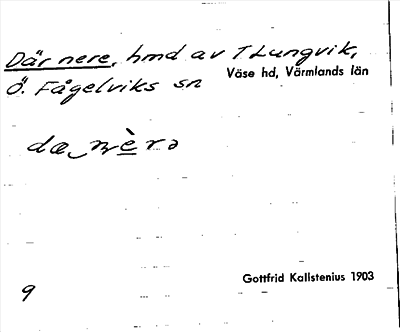 Där nere, hmd av TLungvik,
Ö. Fågelviks sn Väse hd, Värmlands län
dæ‿nè̱rə
Gottfrid Kallstenius 1903
9